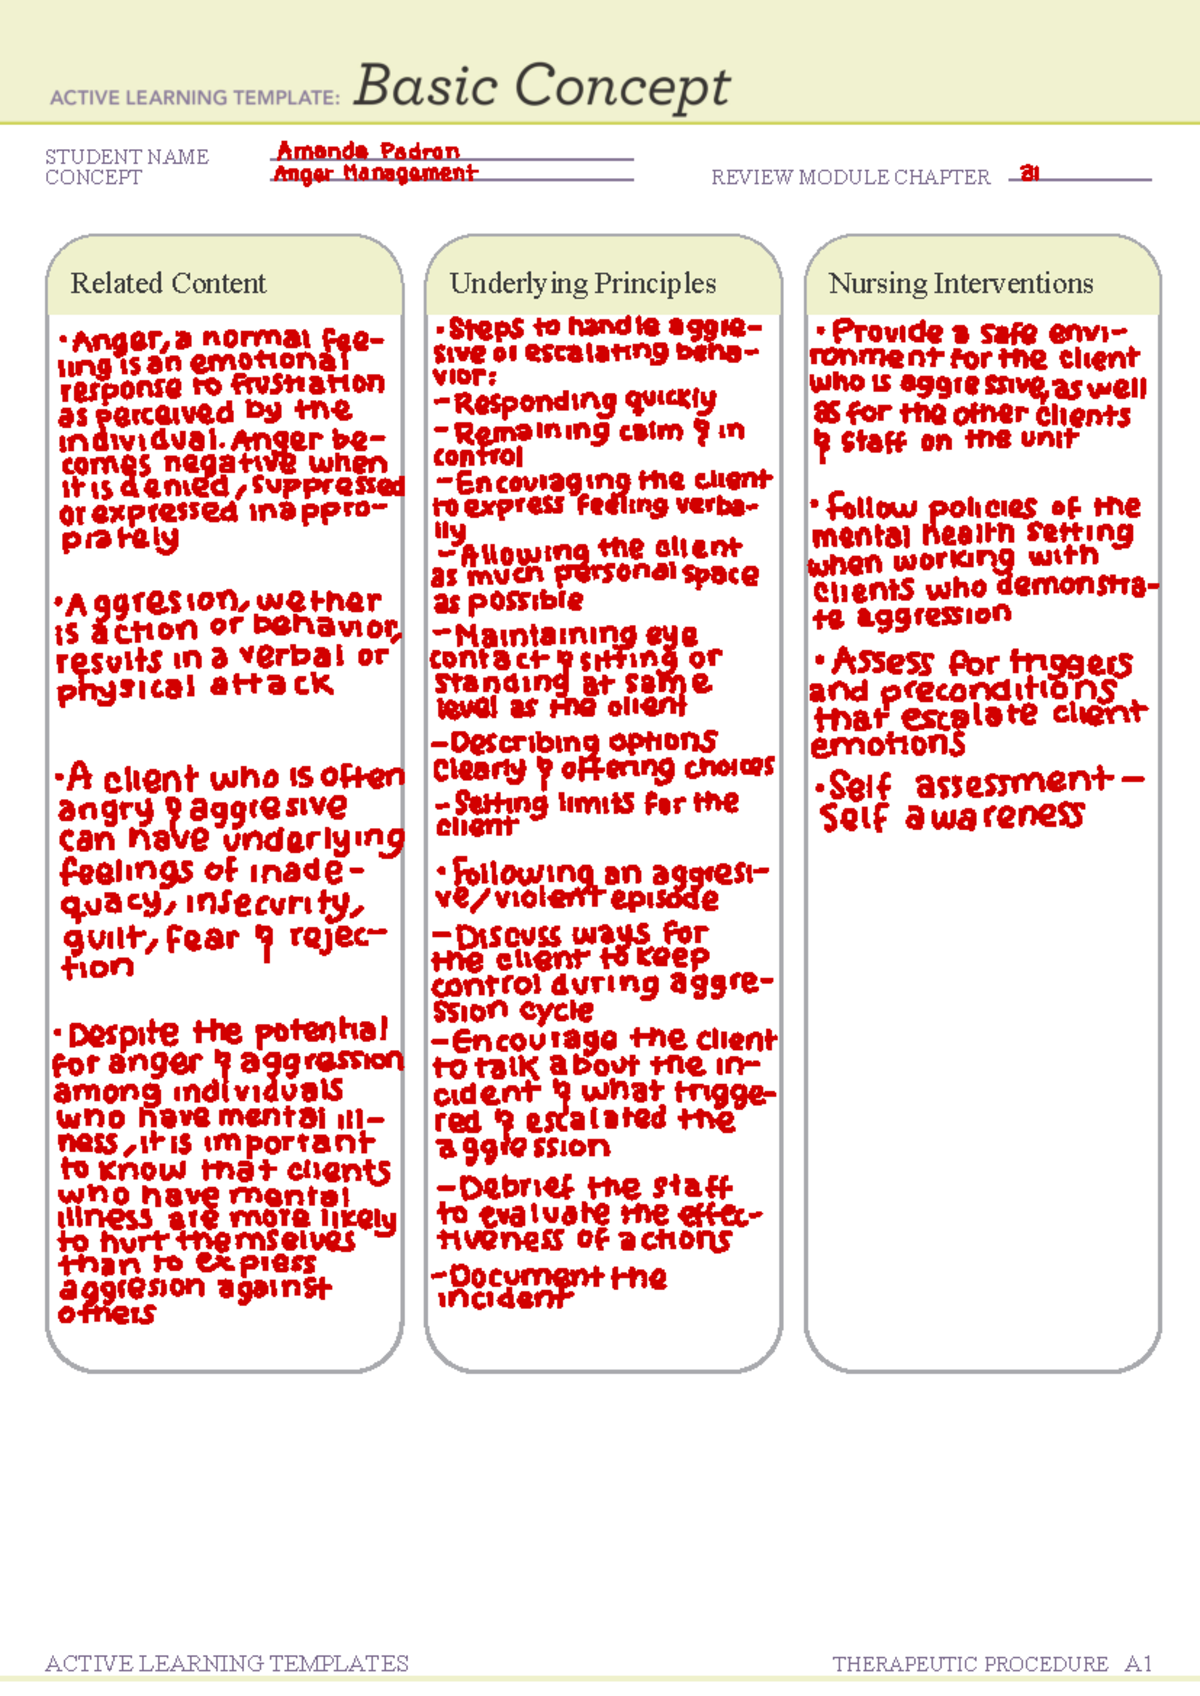 ACTIVE LEARNING TEMPLATE: Basic Concept
STUDENT NAME Amanda Padron
CONCEPT Anger Management
REVIEW MODULE CHAPTER 31
Related Content
·Anger, a normal fee-
ling is an emotional
response to frustration
as perceived by the
individual. Anger be-
comes negative when
it is denied, suppressed
or expressed inappro-
priately
·Aggresion, wether
is action or behavior,
results in a verbal or
physical attack
·A client who is often
angry & aggresive
can have underlying
feelings of inade-
quacy, insecurity,
guilt, fear & rejec-
tion
·Despite the potential
for anger & aggression
among individuals
who have mental ill-
ness, it is important
to know that clients
who have mental
illness are more likely
to hurt themselves
than to express
aggresion against
others
Underlying Principles
·Steps to handle aggre-
sive or escalating beha-
vior:
-Responding quickly
-Remaining calm & in
control
-Encouraging the client
to express feeling verba-
lly
-Allowing the client
as much personal space
as possible
-Maintaining eye
contact & sitting or
standing at same
level as the client
-Describing options
clearly & offering choices
-Setting limits for the
client
·Following an aggresi-
ve/violent episode
-Discuss ways for
the client to keep
control during aggre-
ssion cycle
-Encourage the client
to talk about the in-
cident & what trigge-
red & escalated the
aggression
-Debrief the staff
to evaluate the effec-
tiveness of actions
-Document the
incident
Nursing Interventions
·Provide a safe envi-
ronment for the client
who is aggressive, as well
as for the other clients
& staff on the unit
·Follow policies of the
mental health setting
when working with
clients who demonstra-
te aggression
·Assess for triggers
and preconditions
that escalate client
emotions
·Self assessment-
Self awareness
ACTIVE LEARNING TEMPLATES
THERAPEUTIC PROCEDURE A1